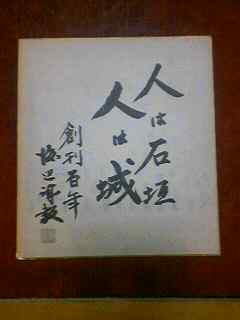 人は石垣
人は城
創刊百年